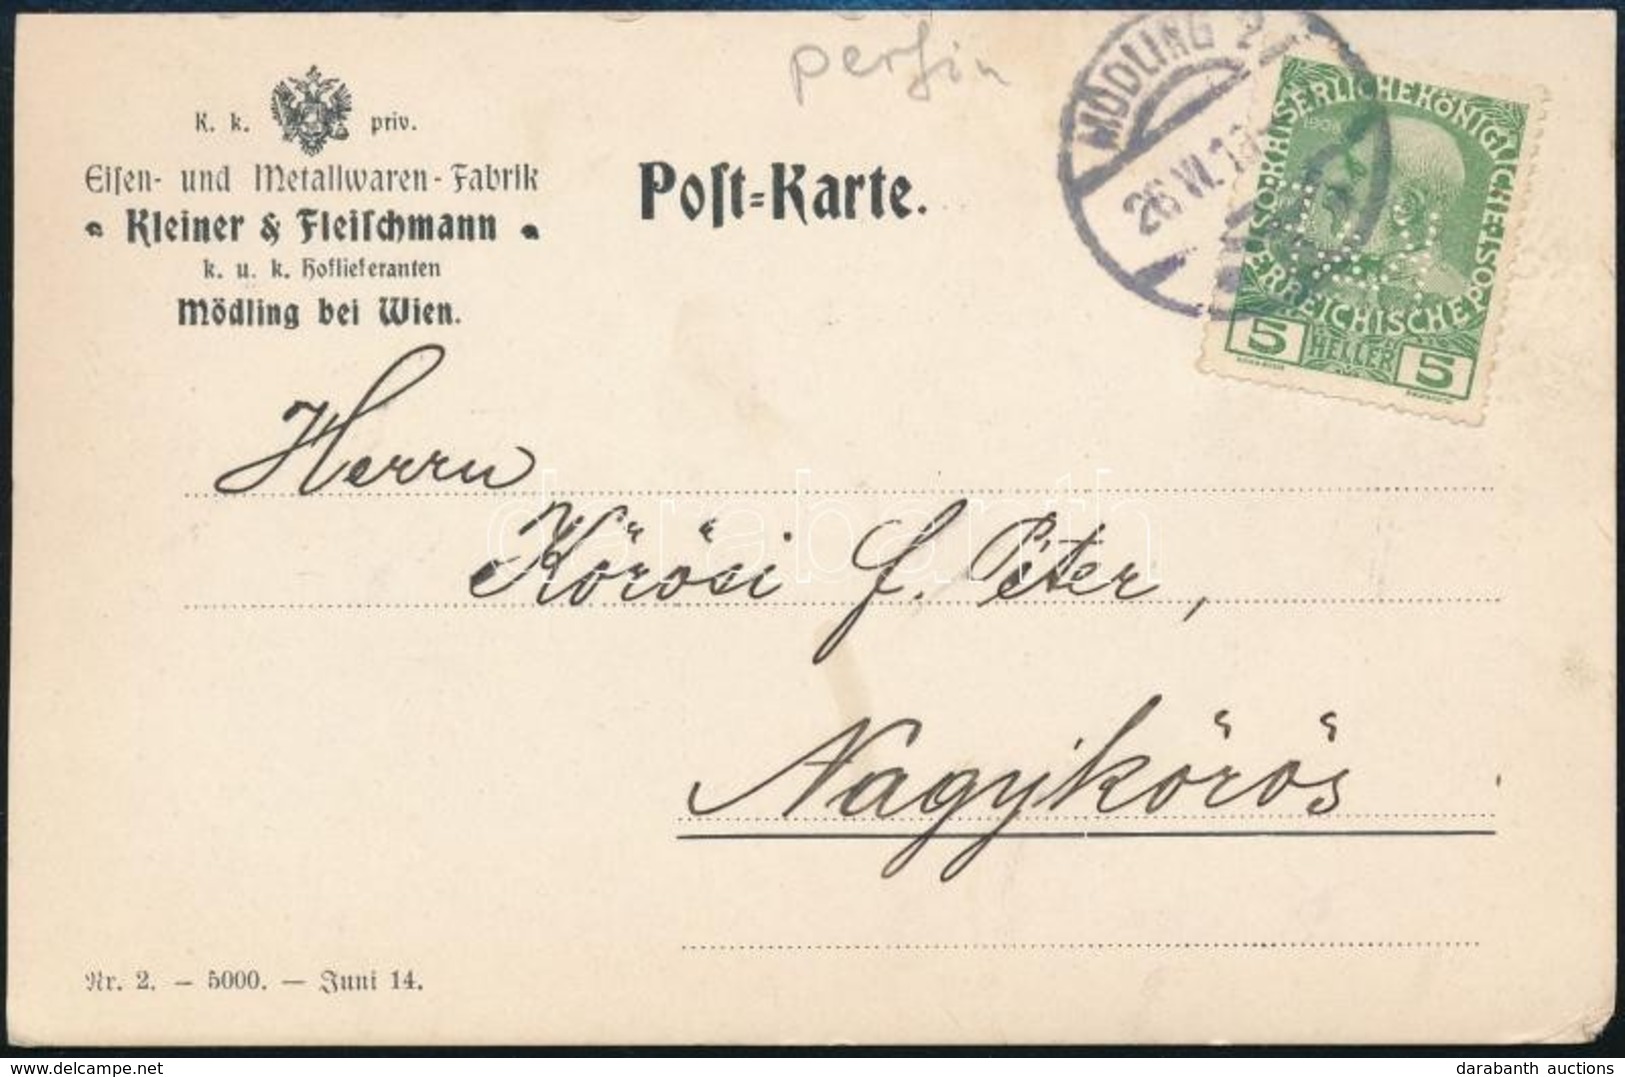 perfin
MÖDLING 2
26.VI.1
KAISERLICHE KÖNIGLICHE
ÖSTERREICHISCHE POST
1908
5 HELLER 5
K. k. priv.
Eiſen- und Metallwaren-Fabrik
Kleiner & Fleiſchmann
k. u. k. Hoflieferanten
Mödling bei Wien.
Poſt-Karte.
Herrn
Körösi f. Péter,
Nagykörös
Nr. 2. — 5000. — Juni 14.
darabanth
darabanth auctions